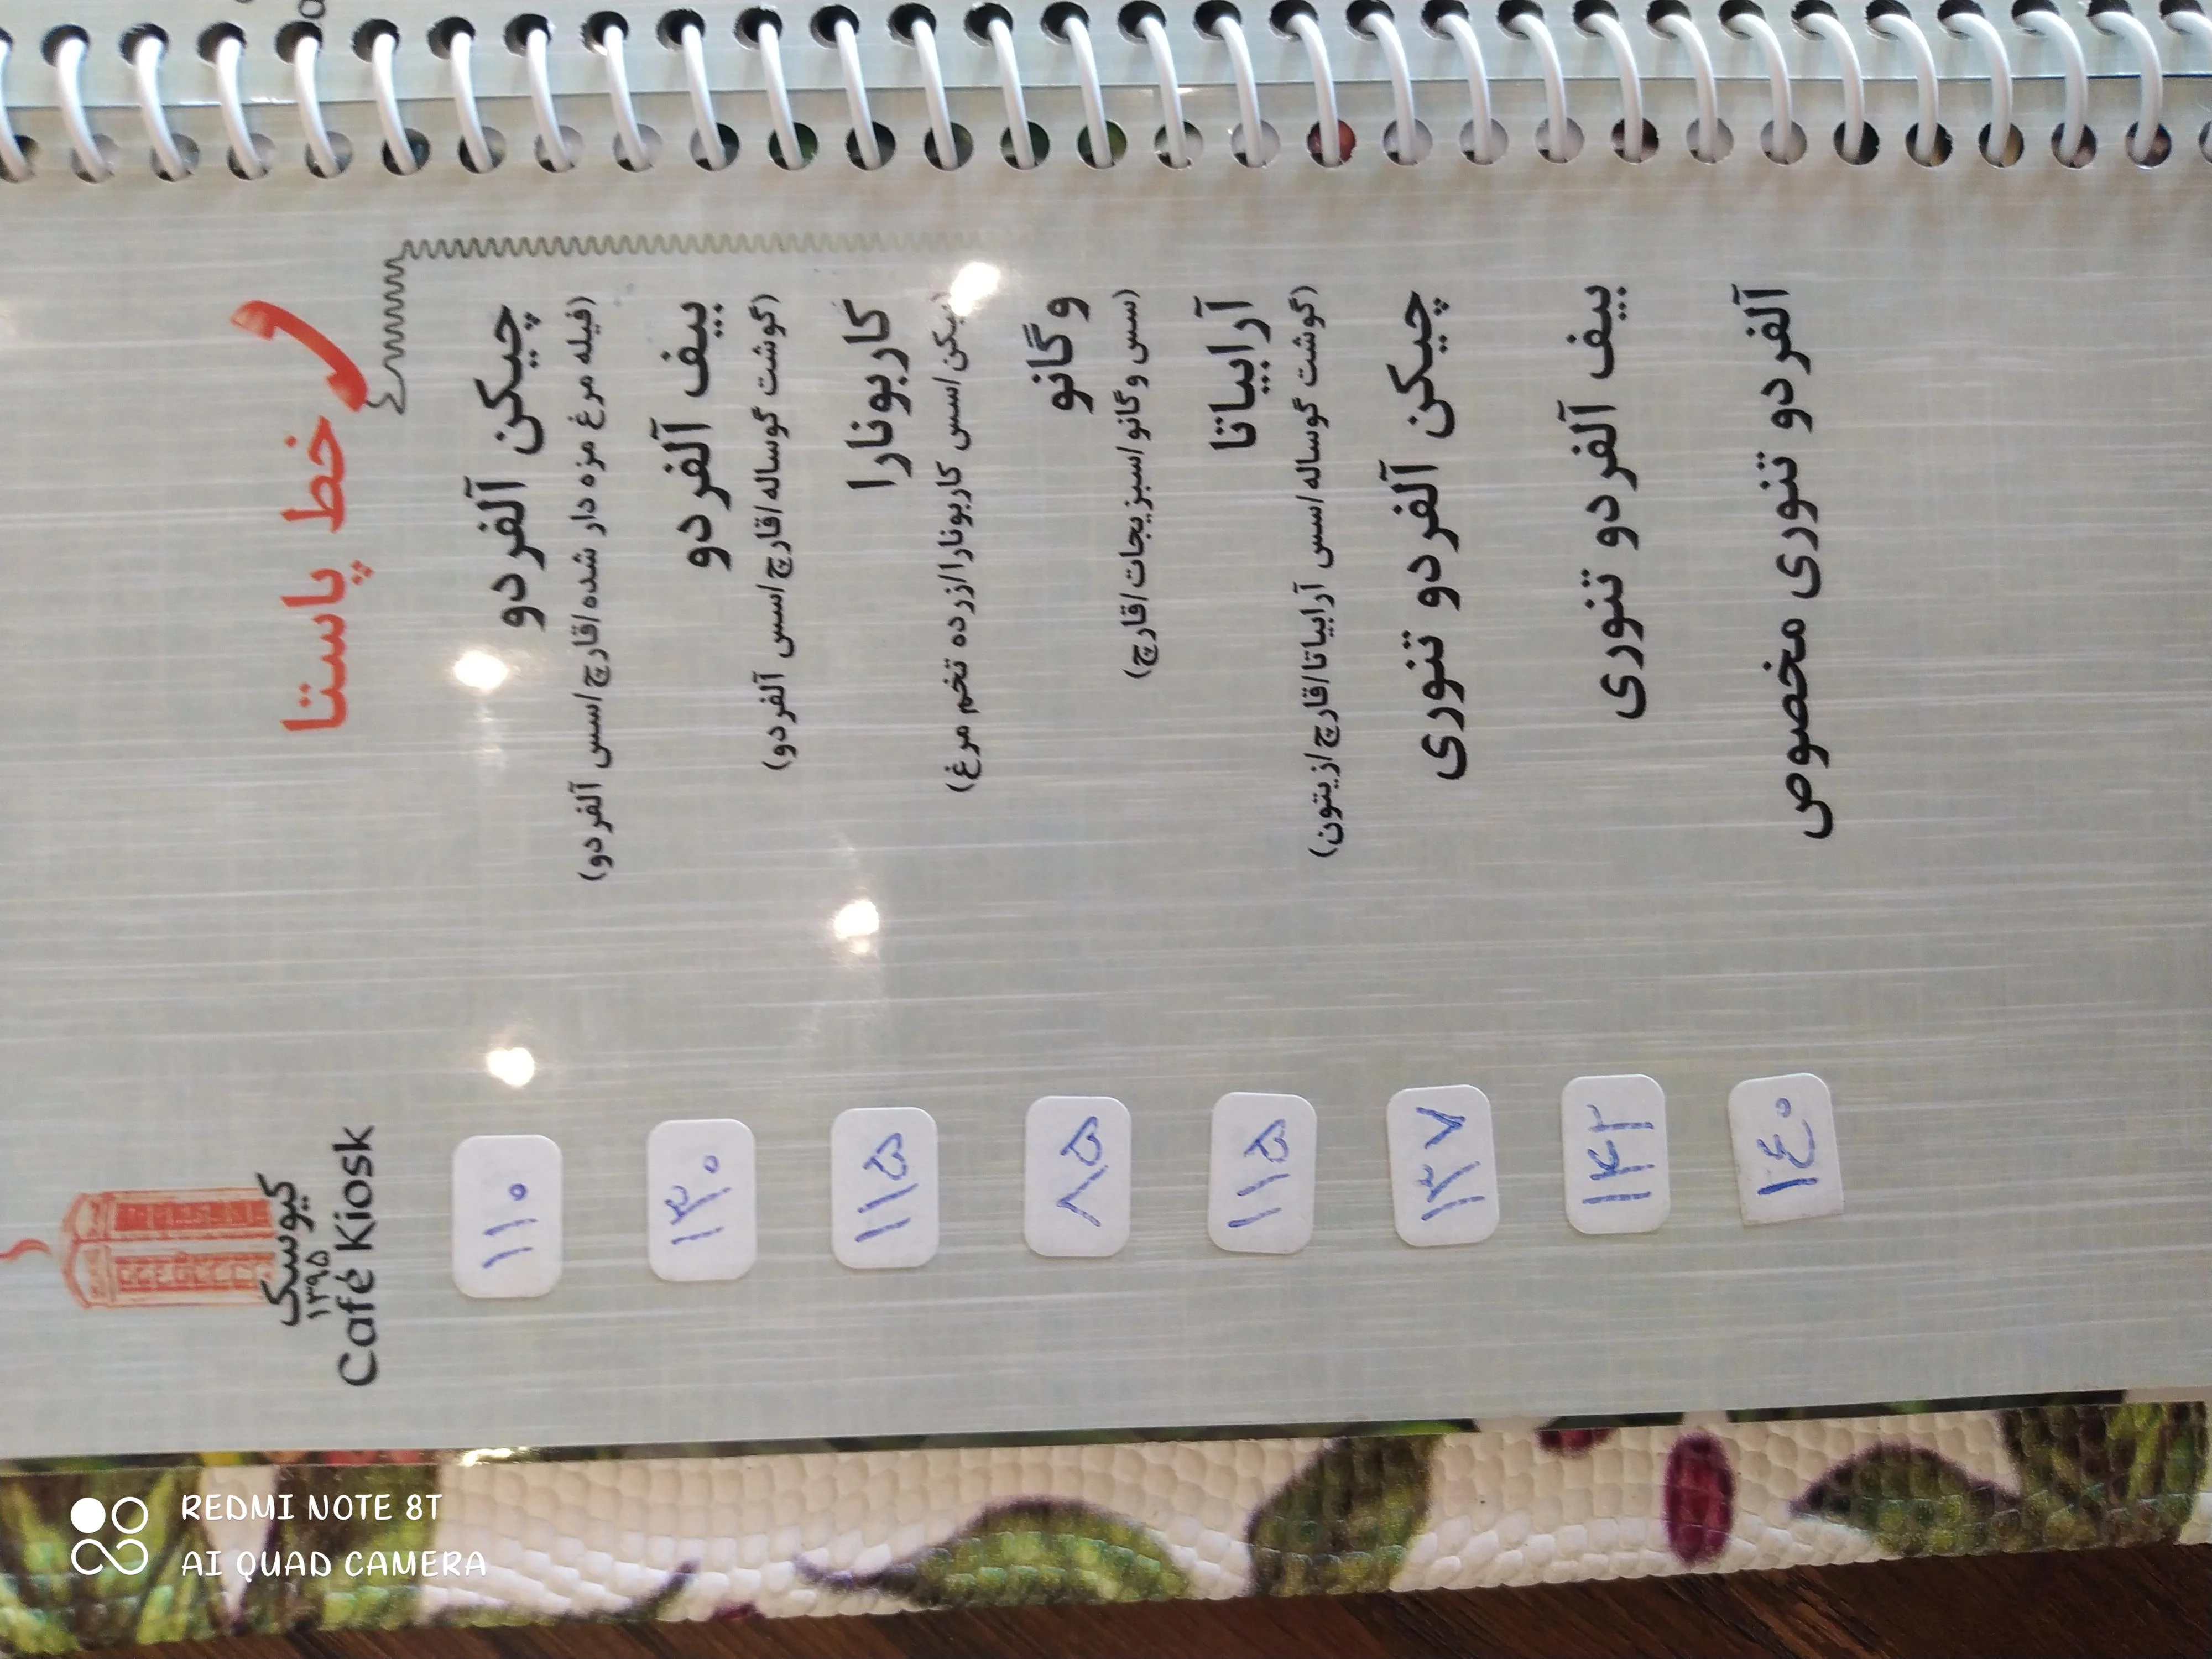 کیوسک
۱۳۹۵
Café Kiosk
خط پاستا
چیکن آلفردو ۱۱۰
(فیله مرغ مزه دار شده/قارچ/سس آلفردو)
بیف آلفردو ۱۳۰
(گوشت گوساله/قارچ/سس آلفردو)
کاربونارا ۱۱۵
سس کاربونارا/زرده تخم مرغ)
وگانو ۸۵
(سس وگانو/سبزیجات/قارچ)
آرابیاتا ۱۱۵
(گوشت گوساله/سس آرابیاتا/قارچ/زیتون)
چیکن آلفردو تنوری ۱۳۷
بیف آلفردو تنوری ۱۴۲
آلفردو تنوری مخصوص ۱۴۰
REDMI NOTE 8T
AI QUAD CAMERA